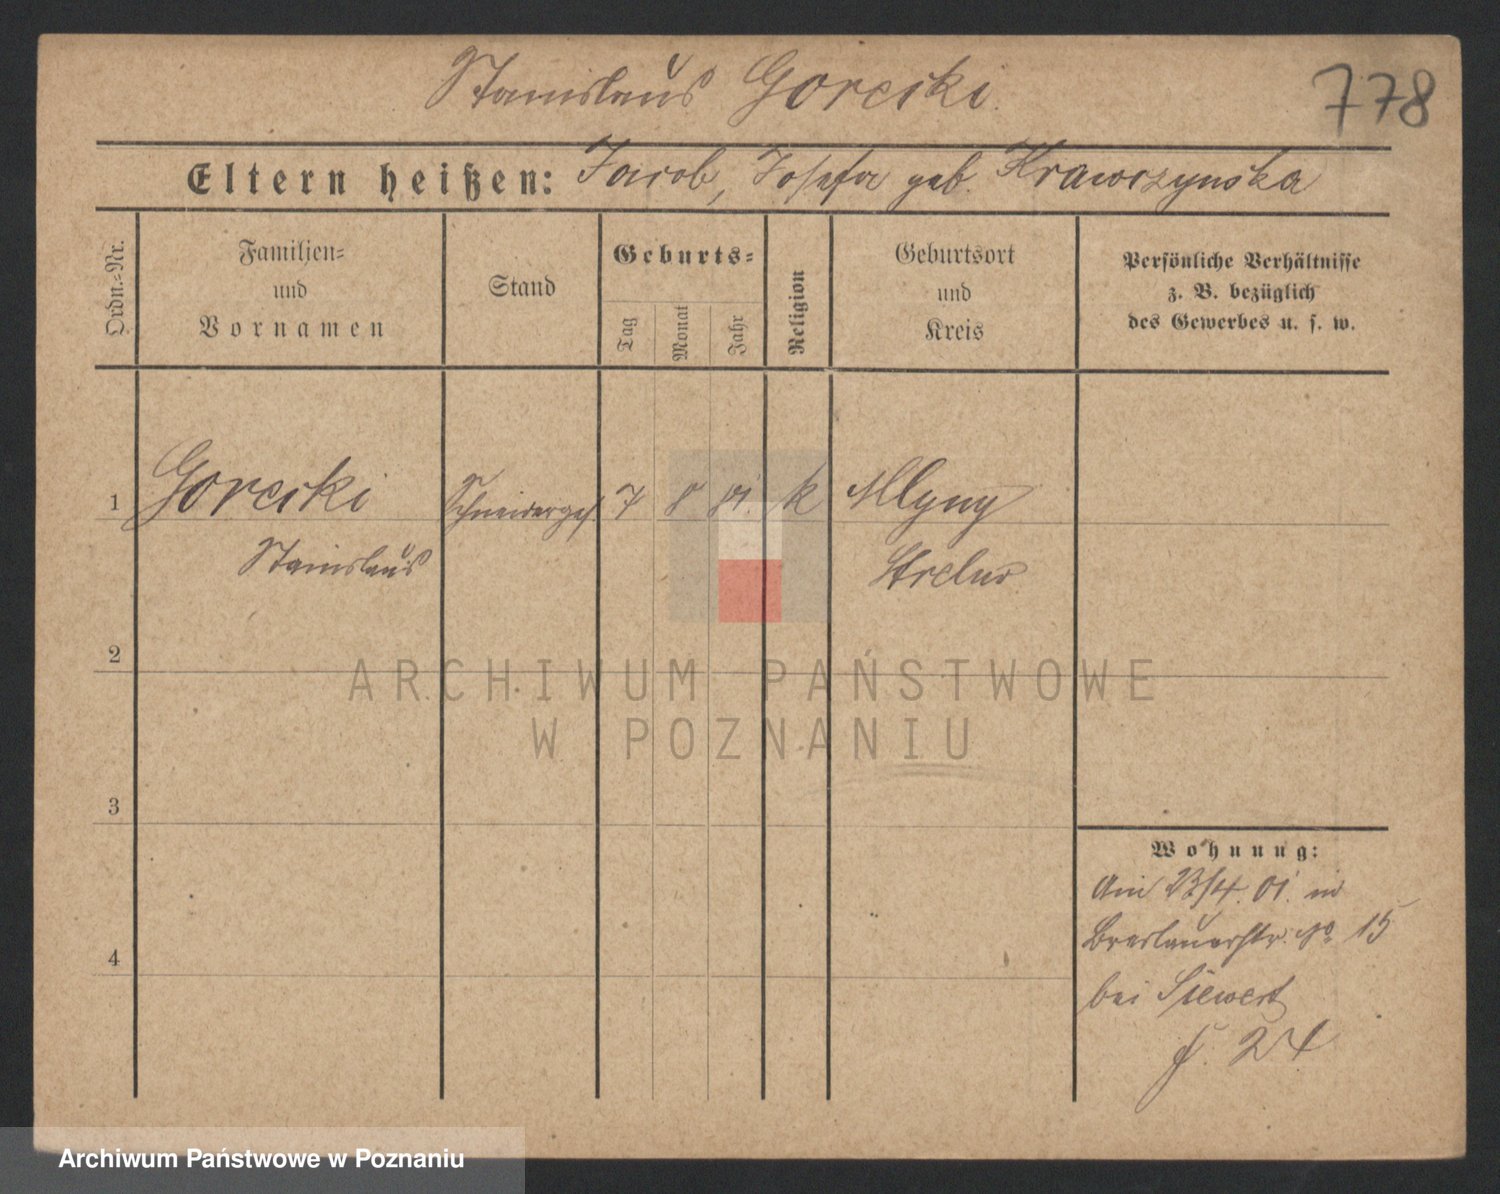 Stanislaus Gorecki.
778
Eltern heißen: Jacob, Josefa geb. Krawczynska
Ordn.-Nr.
Familien-
und
Vornamen
Stand
Geburts-
Tag
Monat
Jahr
Religion
Geburtsort
und
Kreis
Persönliche Verhältnisse
z. B. bezüglich
des Gewerbes u. s. w.
1 Gorecki Schneiderges. 7 8 k Mlyny
Stanislaus Strelno
2
ARCHIWUM PAŃSTWOWE
W POZNANIU
3
4
Wohnung:
Am 23/4. 01. in
Breslauerstr. No 15
bei Siewert
f. 24
Archiwum Państwowe w Poznaniu